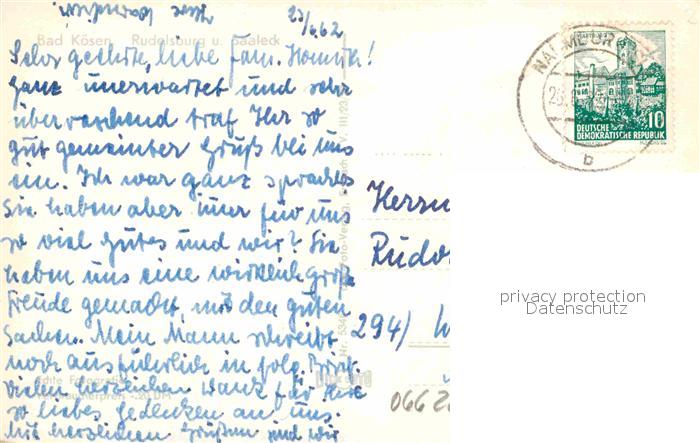 23/6.62
Bad Kösen Rudelsburg u. Saaleck
Sehr geehrte, liebe Fam.
Ganz unerwartet und sehr
überraschend traf Ihr so
gut gemeinter Gruß bei uns
ein. Ich war ganz sprachlos
Sie haben aber imer für uns
so viel gutes und wir? Sie
haben uns eine wirklich große
Freude gemacht, mit den guten
Sachen. Mein Mann schreibt
noch ausführlich in folg. Brief.
Vielen herzlichen Dank für Ihr
so liebes gedenken an uns.
Mit herzlichen Grüßen und wir
Echte Fotografie
Verbraucherpreis -.20 DM
NAUMBURG
b
10
DEUTSCHE
DEMOKRATISCHE REPUBLIK
Herrn
Rudol
294/
privacy protection
Datenschutz